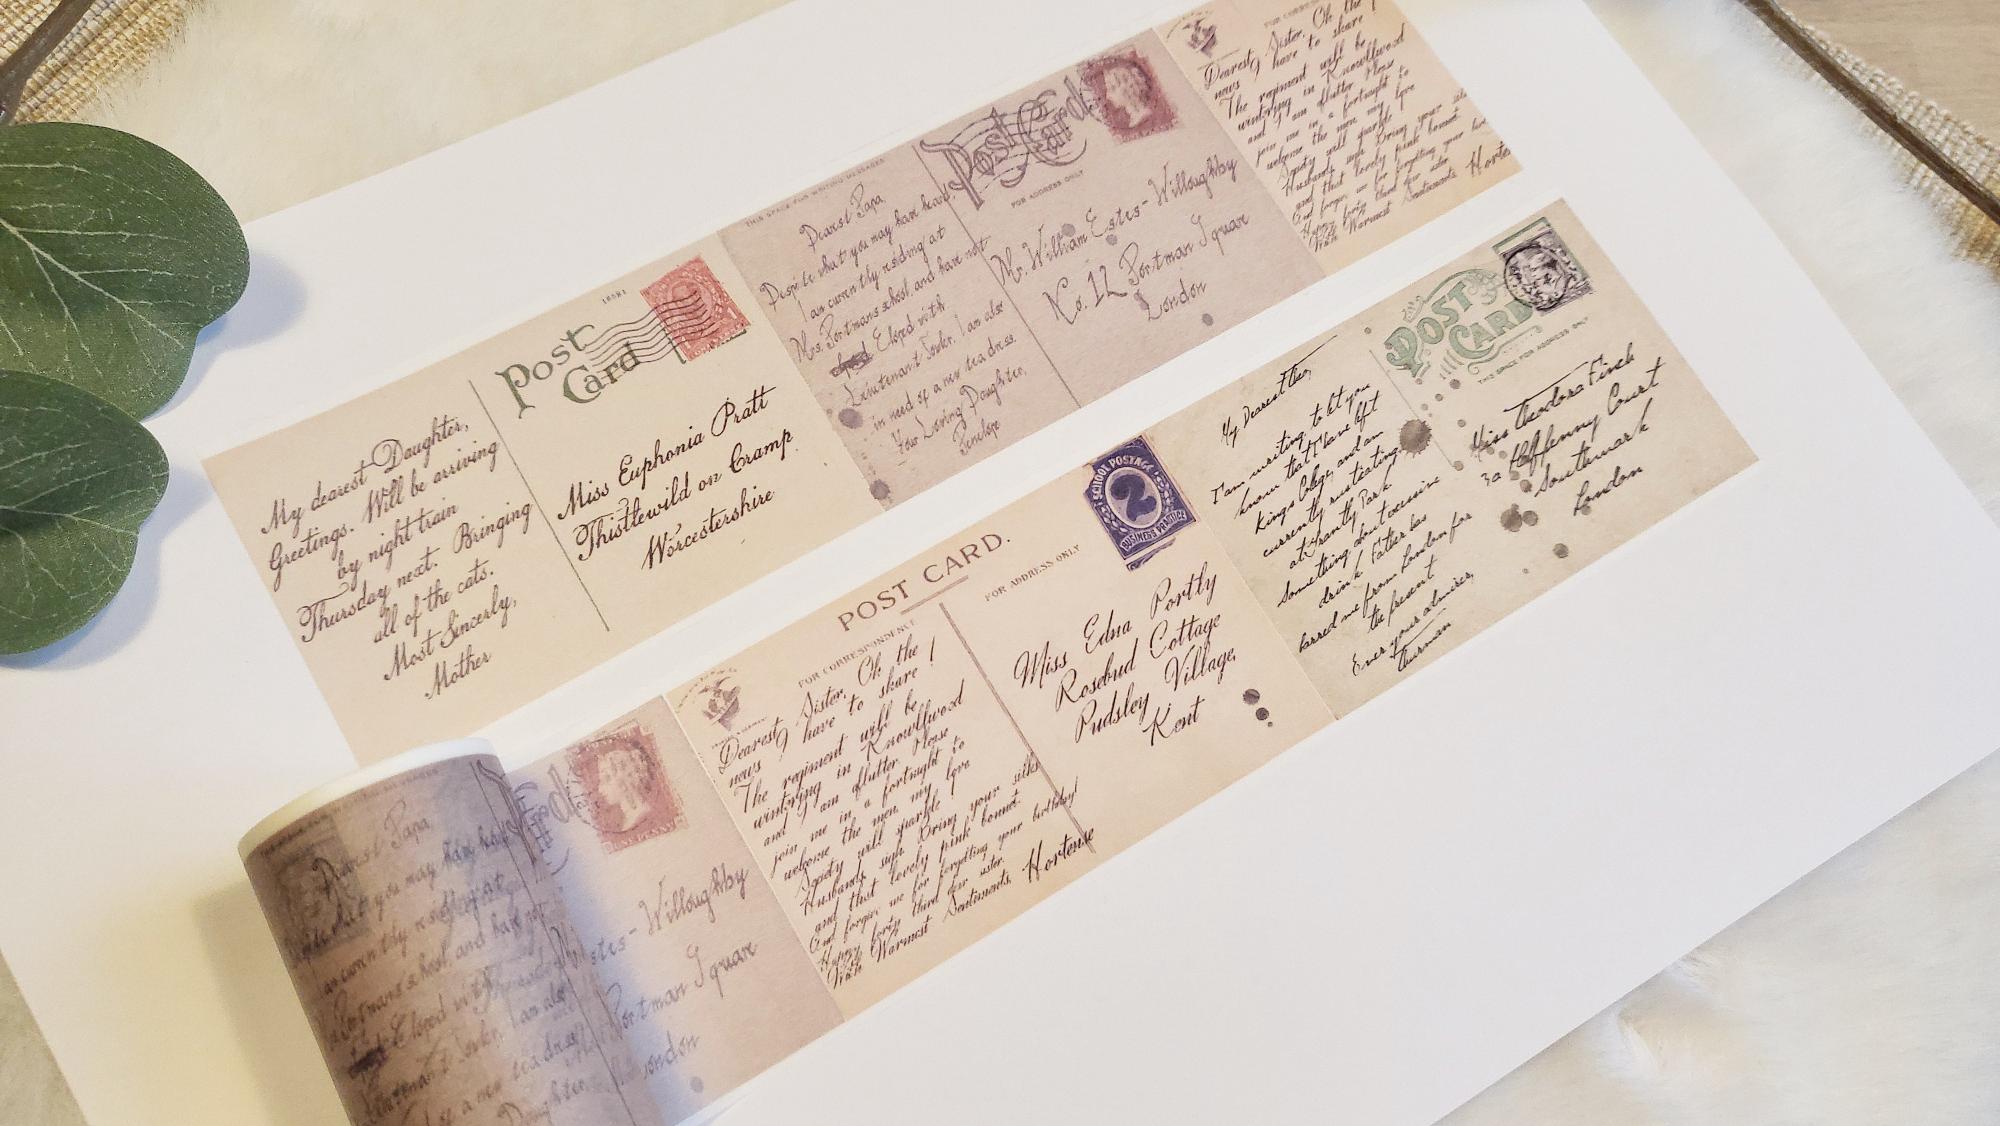 My dearest Daughter,
Greetings. Will be arriving
by night train
Thursday next. Bringing
all of the cats.
Most Sincerely,
Mother
Post
Card
Miss Euphonia Pratt
Thistlewild on Cramp
Worcestershire
THIS SPACE FOR WRITING MESSAGES
Dearest Papa
Despite what you may have heard,
I am currently residing at
Mrs. Portmans school, and have not
Eloped with
Lieutenant Fowler. I am also
in need of a new tea dress.
Your Loving Daughter,
Penelope
Post Card
FOR ADDRESS ONLY
Mr. William Estes-Willoughby
No. 12 Portman Square
London
Dearest Sister, Oh the
news I have to share
The regiment will be
wintering in Knowllwood
and I am aflutter. Please
join me in a fortnight to
welcome the men, my love
Society will sparkle
Husbands sigh. Bring your
and that lovely pink bonnet
And forgive me for forgetting your
Happy forty third dear sister
With Warmest Sentiments,
Dearest Papa
what you may have heard
am currently residing at
Portmans school, and have not
Eloped with
I am also
a new tea dress
Daughter
Estes-Willoughby
Portman Square
London
POST CARD.
FOR CORRESPONDENCE
FOR ADDRESS ONLY
SCHOOL POSTAGE
2
BUSINESS PRACTICE
Dearest Sister, Oh the
news I have to share!
The regiment will be
wintering in Knowllwood
and I am aflutter. Please
join me in a fortnight to
welcome the men, my love
Society will sparkle!
Husbands sigh. Bring your silks
and that lovely pink bonnet.
And forgive me for forgetting your birthday!
Happy forty third dear sister.
With Warmest Sentiments, Hortense
Miss Edna Portly
Rosebud Cottage
Pudsley Village,
Kent
My Dearest Theo,
I am writing to let you
know that I have left
Kings College, and am
currently rusticating
at Brantly Park.
Something about excessive
drink. Father has
barred me from London for
the present
Ever your admirer,
Thurman
POST
CARD
THIS SPACE FOR ADDRESS ONLY
Miss Theodora Finch
3a Halfpenny Court
Southwark
London